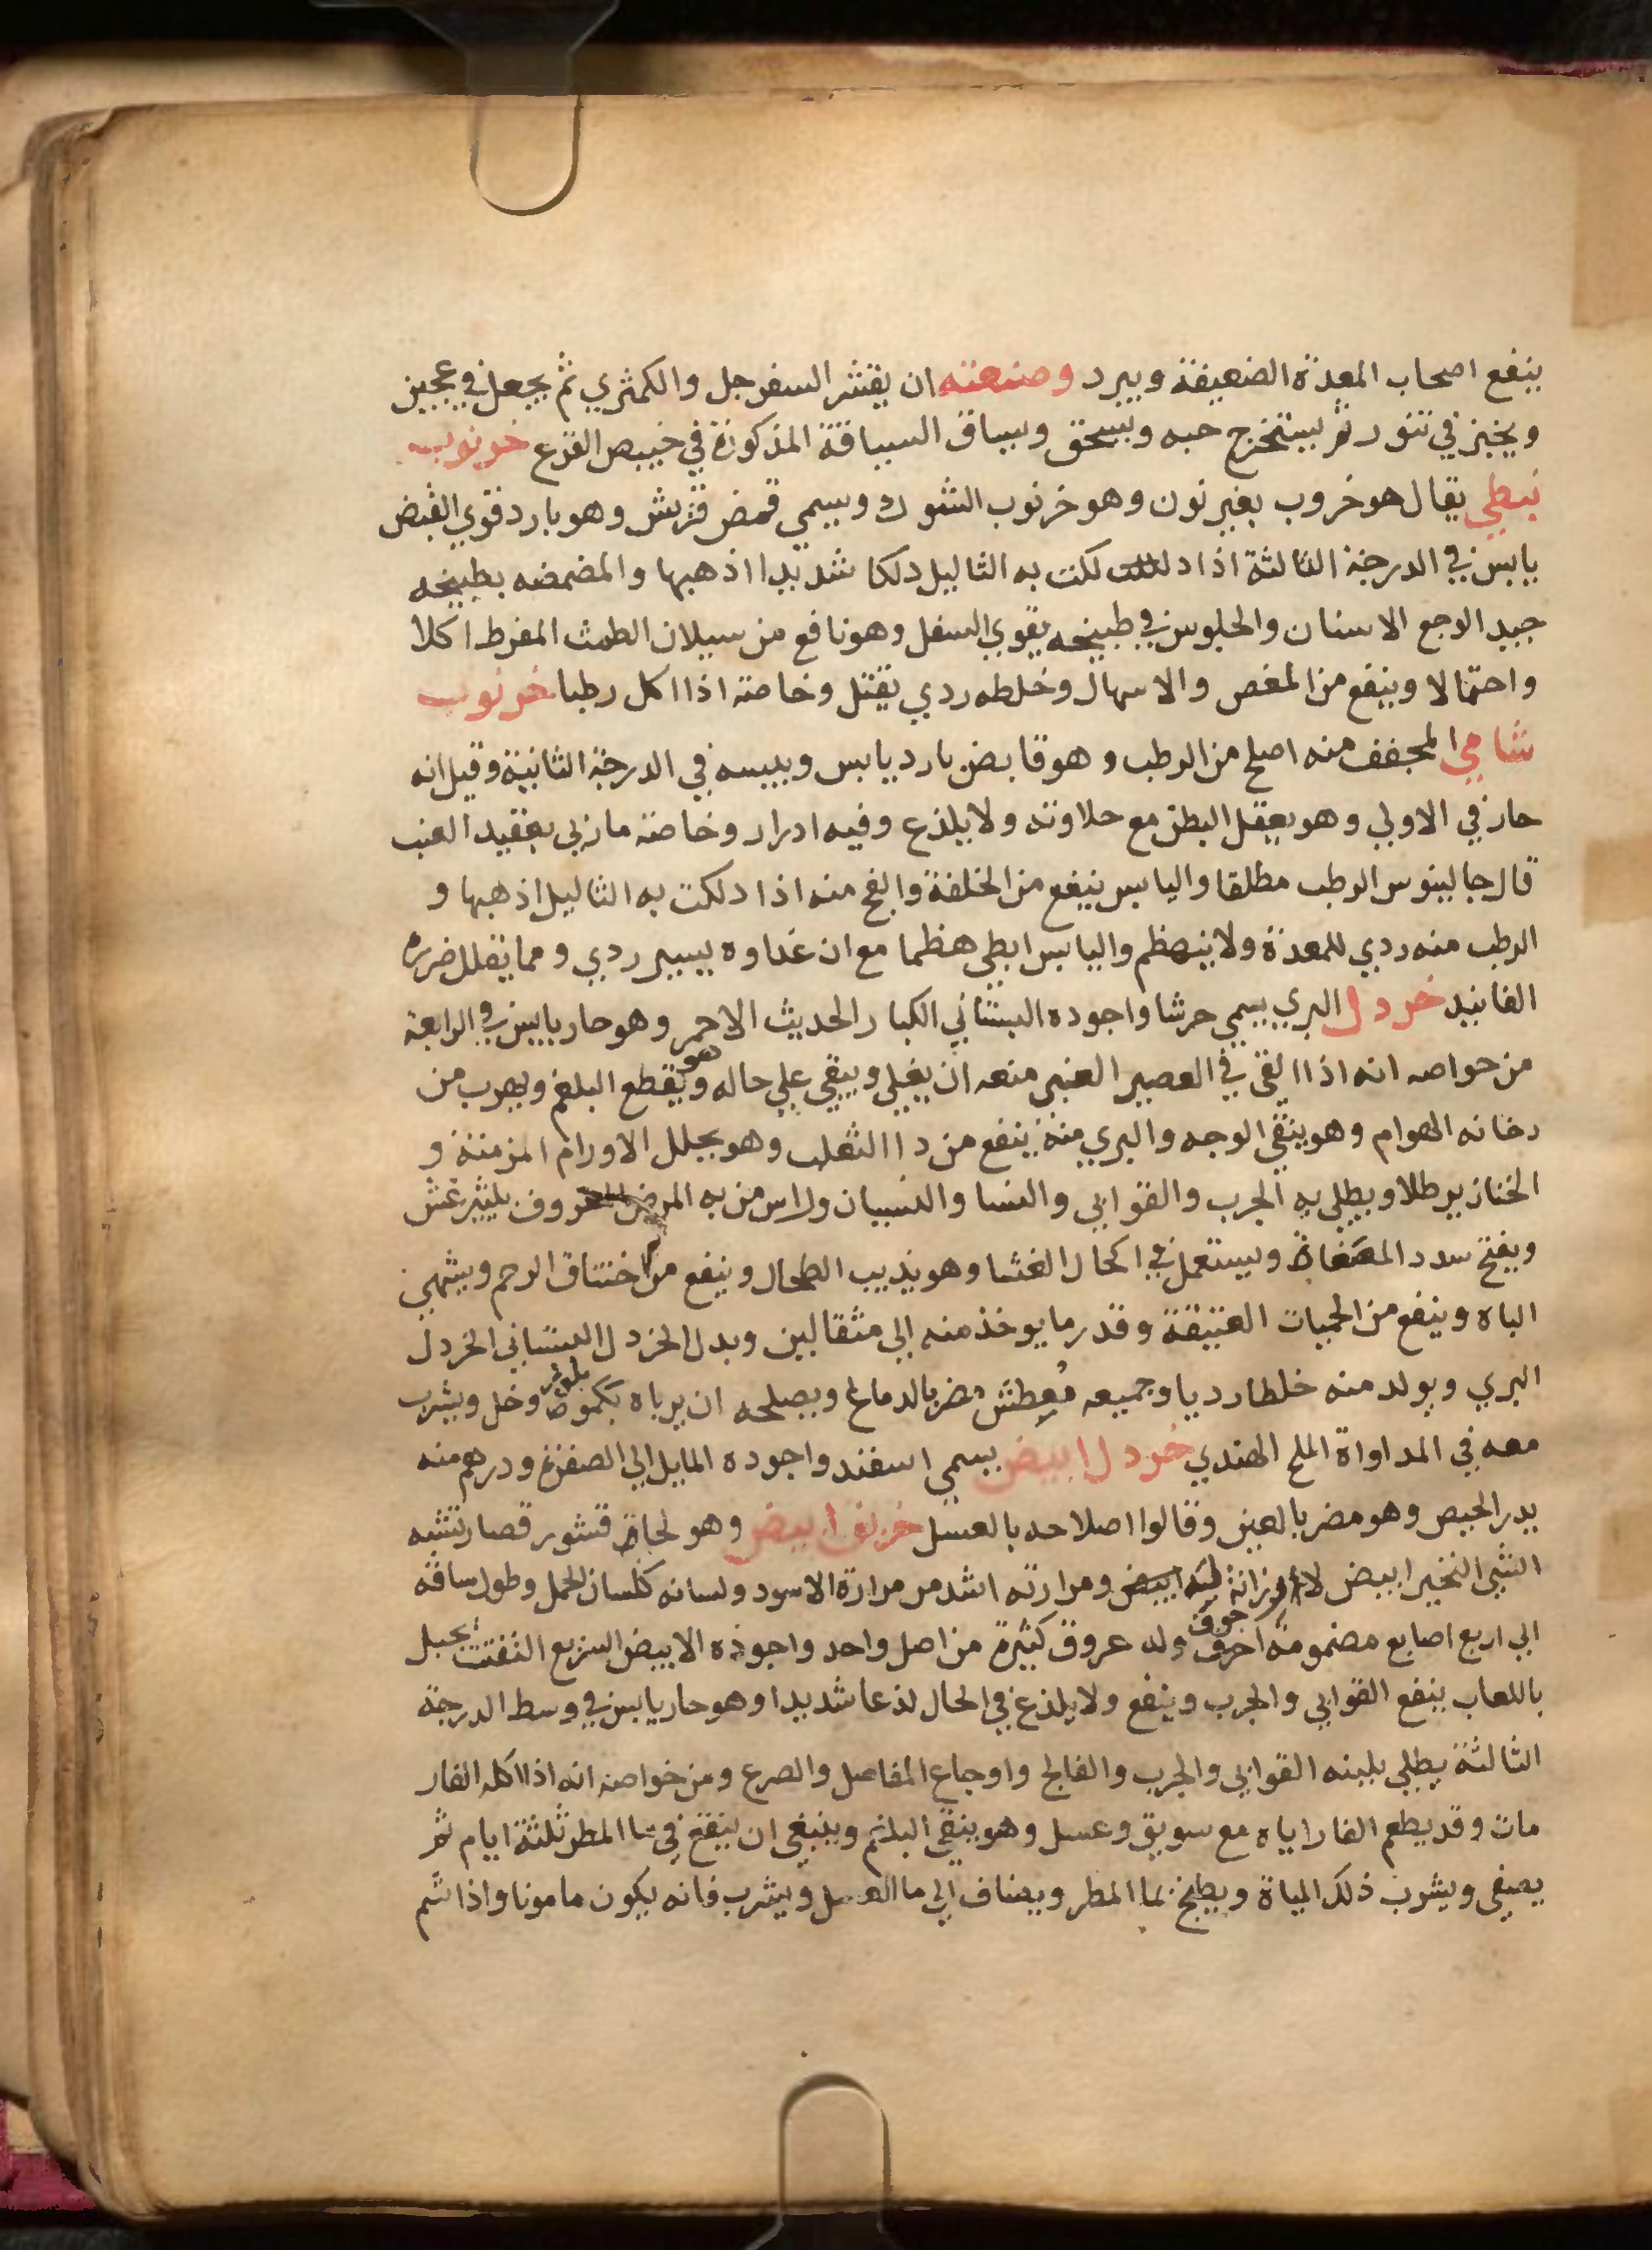 ينفع اصحاب المعدة الضعيفة ويبرد وصنعته ان يقشر السفرجل والكمثري ثم يجعل في عجين
ويخبز في تنور ثم يستخرج حبه ويسحق ويساق السياقة المذكورة في خبيص القرع خرنوب
نبطي يقال هو خروب بغير نون وهو خرنوب الشوك ويسمي قمض قريش وهو بارد قوي القبض
يابس في الدرجة الثالثة اذا دلكت به الثاليل دلكا شديدا اذهبها والمضمضه بطبيخه
جيد الوجع الاسنان والجلوس في طبيخه يقوي السفل وهو نافع من سيلان الطمث المفرط اكلا
واحتمالا وينفع من المغص والاسهال وخلطه ردي يقتل وخاصة اذا اكل رطبا خرنوب
شامي المجفف منه اصلح من الرطب وهو قابض بارد يابس ويبسه في الدرجة الثانية وقيل انه
حار في الاولي وهو يعقل البطن مع حلاوته ولا يلذع وفيه ادرار وخاصة ما ربي بعقيد العنب
قال جالينوس الرطب مطلقا واليابس ينفع من الخلفة والفج منه اذا دلكت به الثاليل اذهبها و
الرطب منه ردي للمعدة ولا ينهظم واليابس ابطي هظما مع ان غداوه يسير ردي ومما يقلل ضرره
الفانيد خردل البري يسمي حرشا واجوده البستاني الكبار الحديث الاحمر وهو حار يابس في الرابعة
من خواصه انه اذا القي في العصير العنبي منعه ان يغلي ويبقي علي حاله وهو يقطع البلغم ويهرب من
دخانه الهوام وهو ينقي الوجه والبري منه ينفع من داا الثعلب وهو يحلل الاورام المزمنة و
الخنازير طلا ويطلي به الجرب والقوابي والنسا والنسيان وراس من به المرض المعروف بليثرغش
ويفتح سدد المصفاة ويستعمل في اكحال الغشا وهو يذيب الطحال وينفع من اختناق الرحم ويشهي
الباه وينفع من الحميات العتيقة وقدر ما يوخذ منه الي مثقالين وبدل الخردل البستاني الخردل
البري ويولد منه خلطا رديا وجميعه مُعطش مضر بالدماغ ويصلحه ان يرباه بلوز وخل ويشرب
معه في المداواة الملح الهندي خردل ابيض يسمي اسفند واجوده المايل الي الصفرة ودرهم منه
يدر الحيض وهو مضر بالعين وقالوا اصلاحه بالعسل خربق ابيض وهو لحاة قشور قصار تشبه
الشي النخير ابيض ابيض ومرارته اشد من مرارة الاسود ولسانه كلسان الحمل وطول ساقه
الي اربع اصابع مضمومة اجوف وله عروق كثيرة من اصل واحد واجوده الابيض السريع التفتت يجبل
باللعاب ينفع القوابي والجرب وينفع ولا يلذع في الحال لذعا شديدا وهو حار يابس في وسط الدرجة
الثالثة يطلي بلبنه القوابي والجرب والفالج واوجاع المفاصل والصرع ومن خواصه انه اذا اكله الفار
مات وقد يطعم الفار اياه مع سويق وعسل وهو ينقي البلغم وينبغي ان ينقع في ما المطر ثلثة ايام ثم
يصفي ويشرب ذلك المياة ويطبخ بما المطر ويضاف الي ما العسل ويشرب فانه يكون مامونا واذا شم